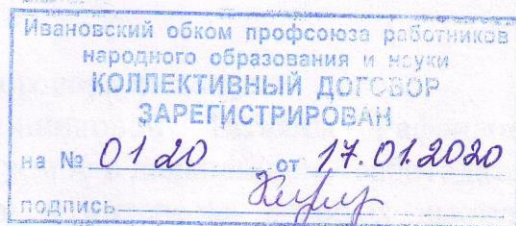 Ивановский обком профсоюза работников
народного образования и науки
КОЛЛЕКТИВНЫЙ ДОГОВОР
ЗАРЕГИСТРИРОВАН
на № 01 20 от 17.01.2020
подпись